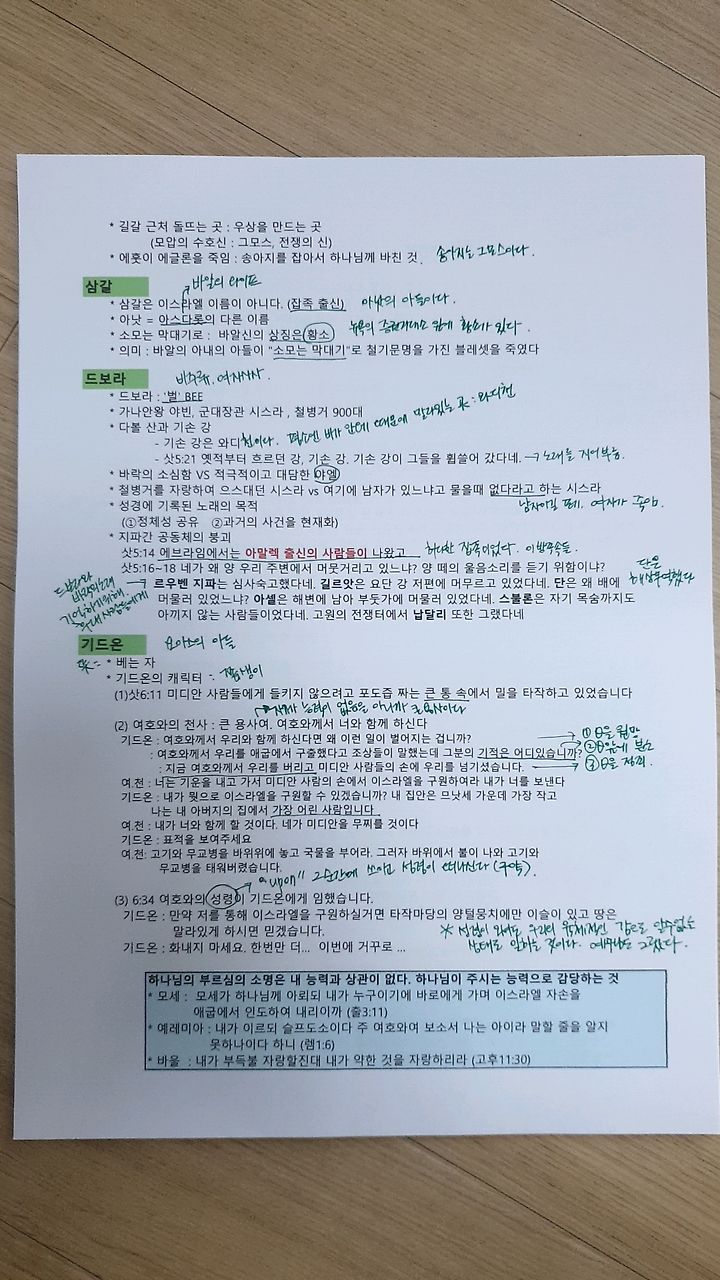 * 길갈 근처 돌뜨는 곳 : 우상을 만드는 곳
(모압의 수호신 : 그모스, 전쟁의 신)
* 에훗이 에글론을 죽임 : 송아지를 잡아서 하나님께 바친 것. 송아지는 그모스이다.
삼갈
바알의 와이프
* 삼갈은 이스라엘 이름이 아니다. (잡족 출신) 아낫의 아들이다.
* 아낫 = 아스다롯의 다른 이름
* 소모는 막대기로 : 바알신의 상징은 황소 앞에 황소가 있다.
* 의미 : 바알의 아내의 아들이 "소모는 막대기"로 철기문명을 가진 블레셋을 죽였다
드보라
여자사사.
* 드보라 : '벌' BEE
* 가나안왕 야빈, 군대장관 시스라 , 철병거 900대
* 다볼 산과 기손 강
- 기손 강은 와디천이다. 평소엔 비가 안오기 때문에 말라있는 곳 : 와디천
- 삿5:21 옛적부터 흐르던 강, 기손 강. 기손 강이 그들을 휩쓸어 갔다네. → 노래를 지어부름.
* 바락의 소심함 VS 적극적이고 대담한 야엘
* 철병거를 자랑하여 으스대던 시스라 vs 여기에 남자가 있느냐고 물을때 없다라고 하는 시스라
* 성경에 기록된 노래의 목적 여자가 죽임.
(①정체성 공유 ②과거의 사건을 현재화)
* 지파간 공동체의 붕괴
삿5:14 에브라임에서는 아말렉 출신의 사람들이 나왔고 이방족속들.
삿5:16~18 네가 왜 양 우리 주변에서 머뭇거리고 있느냐? 양 떼의 울음소리를 듣기 위함이냐?
단은
드보라와
바락의노래
기억하기위해
후대 사람들에게
→ 르우벤 지파는 심사숙고했다네. 길르앗은 요단 강 저편에 머무르고 있었다네. 단은 왜 배에
머물러 있었느냐? 아셀은 해변에 남아 부둣가에 머물러 있었다네. 스불론은 자기 목숨까지도
아끼지 않는 사람들이었다네. 고원의 전쟁터에서 납달리 또한 그랬다네
기드온 요아스의 아들
* 베는 자
* 기드온의 캐릭터 : 겁쟁이
(1)삿6:11 미디안 사람들에게 들키지 않으려고 포도즙 짜는 큰 통 속에서 밀을 타작하고 있었습니다
능력이 없음을 아니까 큰 용사이다
(2) 여호와의 천사 : 큰 용사여. 여호와께서 너와 함께 하신다
기드온 : 여호와께서 우리와 함께 하신다면 왜 이런 일이 벌어지는 겁니까? → ① 을 원망
: 여호와께서 우리를 애굽에서 구출했다고 조상들이 말했는데 그분의 기적은 어디있습니까? ②
: 지금 여호와께서 우리를 버리고 미디안 사람들의 손에 우리를 넘기셨습니다. → ③
여.전 : 너는 기운을 내고 가서 미디안 사람의 손에서 이스라엘을 구원하여라 내가 너를 보낸다
기드온 : 내가 뭣으로 이스라엘을 구원할 수 있겠습니까? 내 집안은 므낫세 가운데 가장 작고
나는 내 아버지의 집에서 가장 어린 사람입니다.
여.전 : 내가 너와 함께 할 것이다. 네가 미디안을 무찌를 것이다
기드온 : 표적을 보여주세요
여.전: 고기와 무교병을 바위위에 놓고 국물을 부어라. 그러자 바위에서 불이 나와 고기와
무교병을 태워버렸습니다.
"upon" 그순간에 쓰이고 성령이 떠나신다 (구약).
(3) 6:34 여호와의 성령이 기드온에게 임했습니다.
기드온 : 만약 저를 통해 이스라엘을 구원하실거면 타작마당의 양털뭉치에만 이슬이 있고 땅은
말라있게 하시면 믿겠습니다.
※ 성령이 와서도 우리의
기드온 : 화내지 마세요. 한번만 더... 이번에 거꾸로 ...
하나님의 부르심의 소명은 내 능력과 상관이 없다. 하나님이 주시는 능력으로 감당하는 것
* 모세 : 모세가 하나님께 아뢰되 내가 누구이기에 바로에게 가며 이스라엘 자손을
애굽에서 인도하여 내리이까 (출3:11)
* 예레미아 : 내가 이르되 슬프도소이다 주 여호와여 보소서 나는 아이라 말할 줄을 알지
못하나이다 하니 (렘1:6)
* 바울 : 내가 부득불 자랑할진대 내가 약한 것을 자랑하리라 (고후11:30)